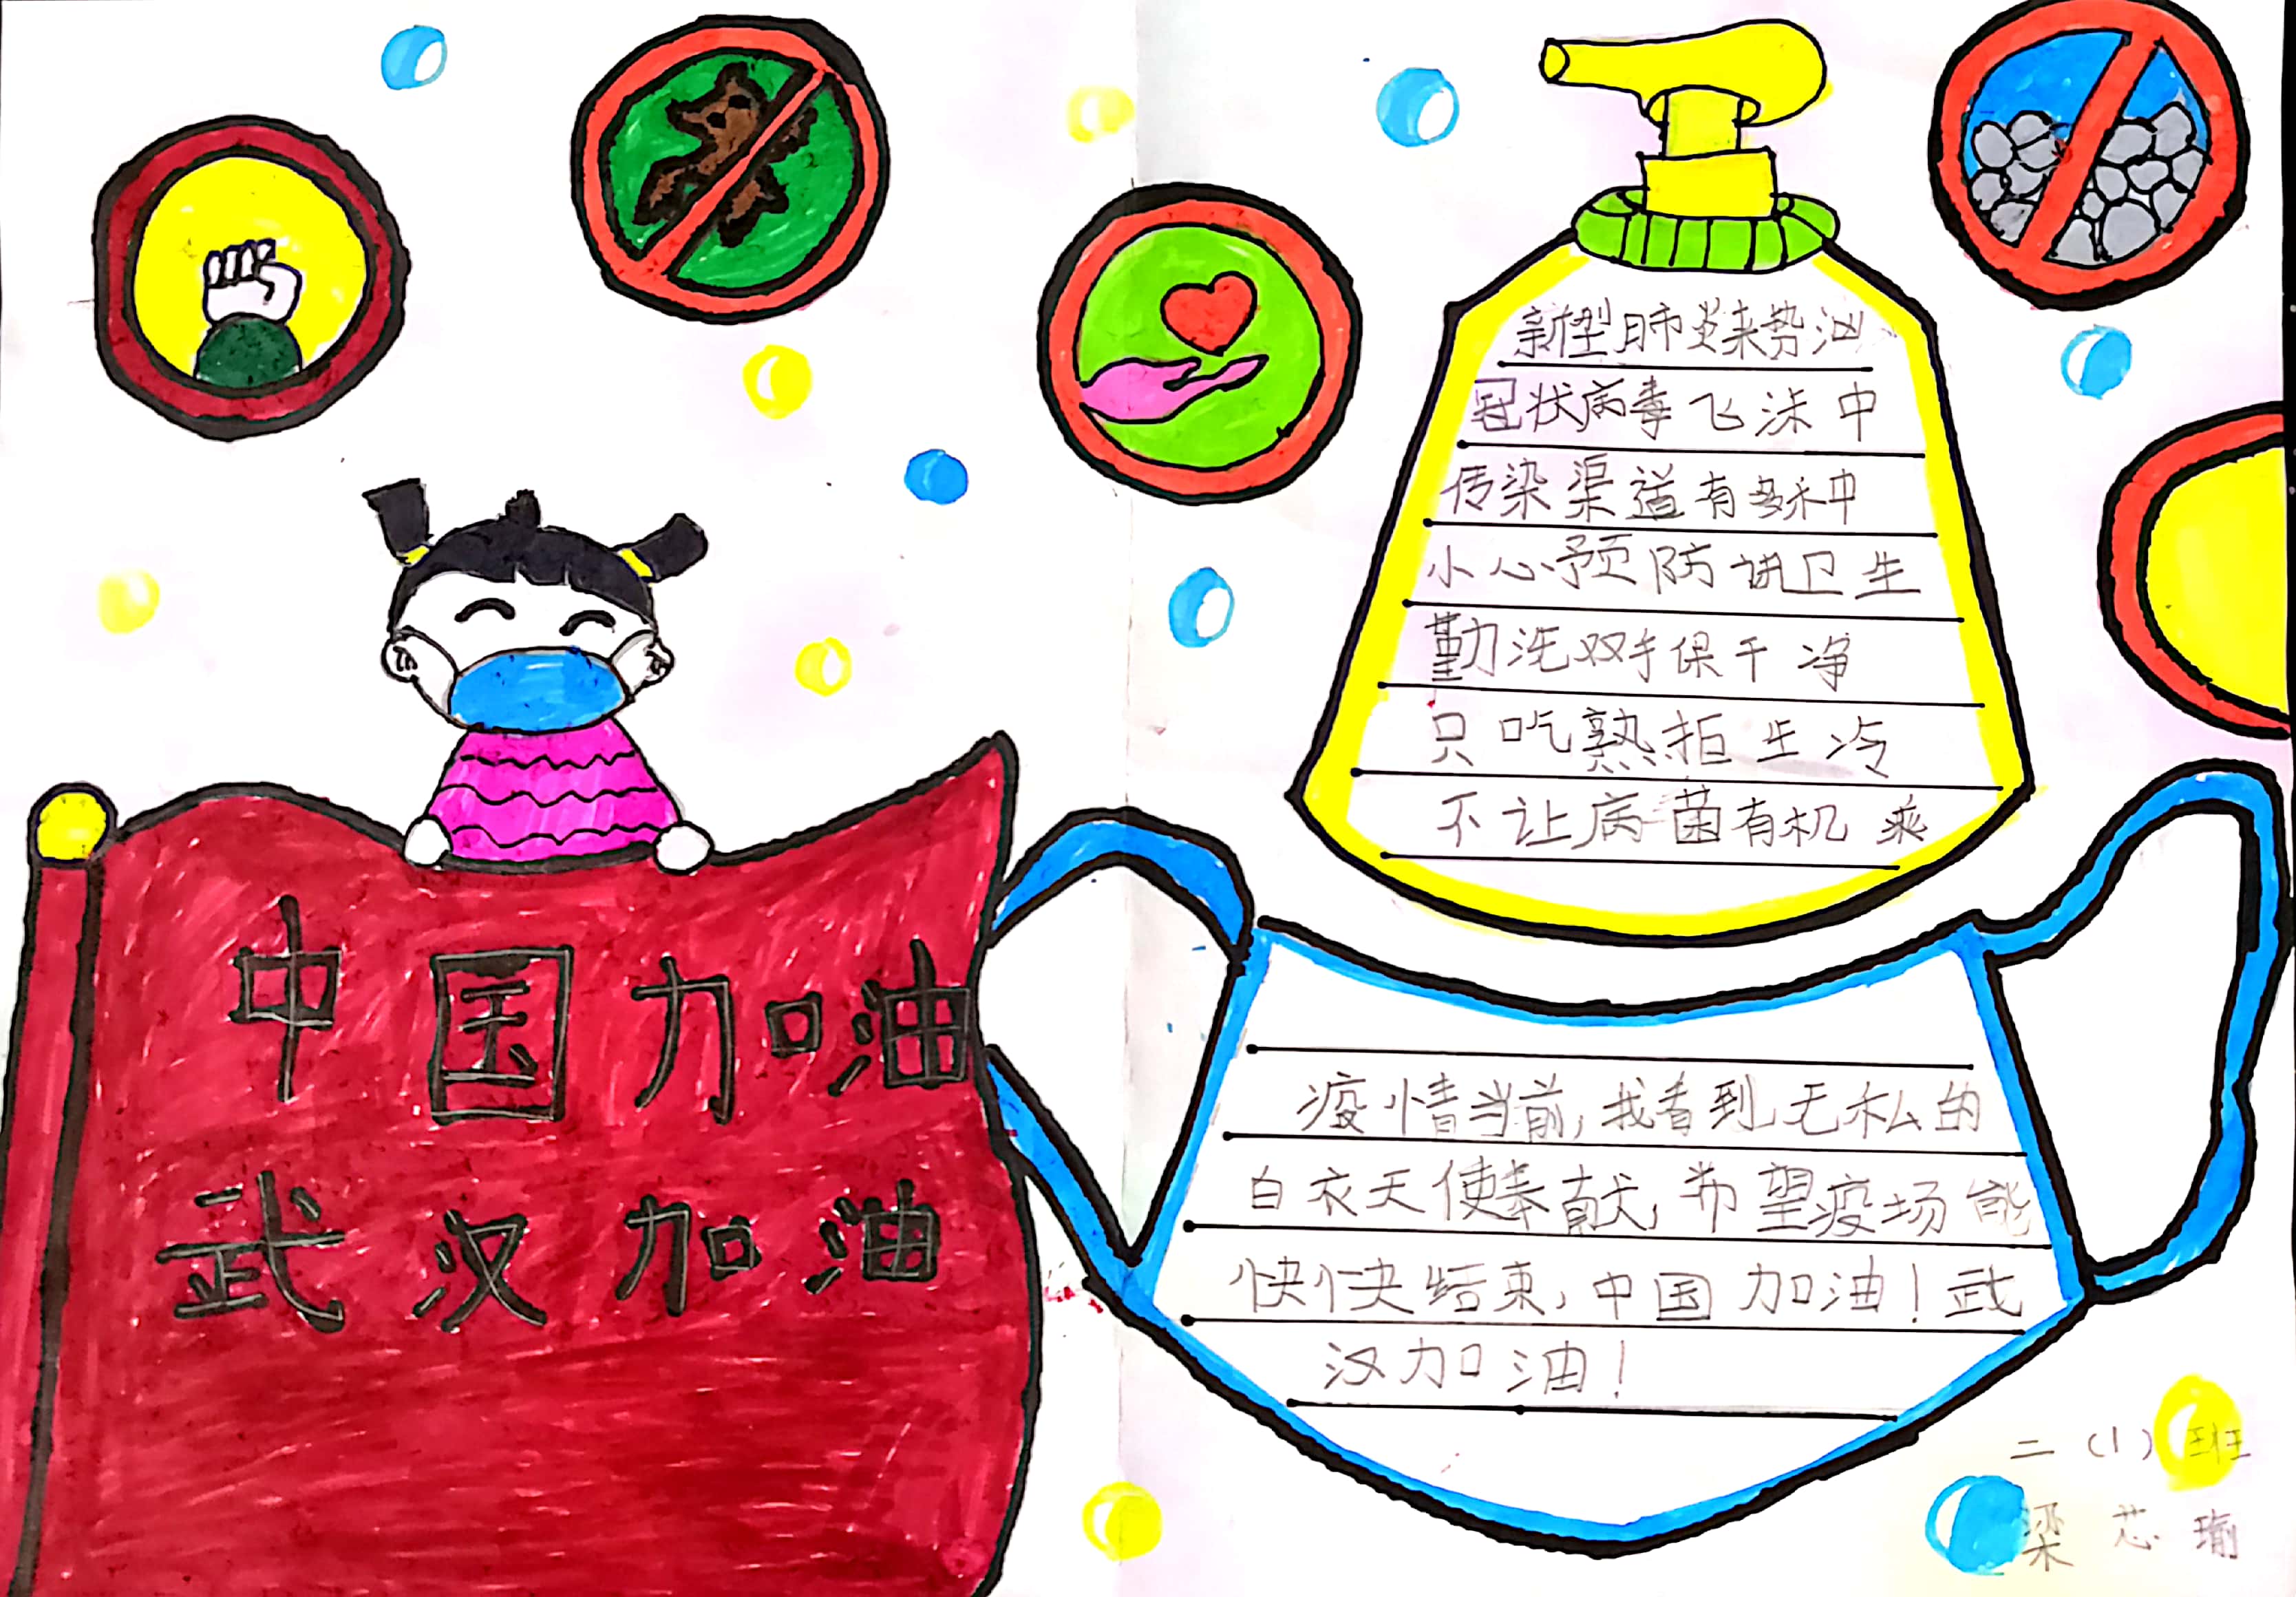 中国加油
武汉加油
新型肺炎来势汹
冠状病毒飞沫中
传染渠道有多种
小心预防讲卫生
勤洗双手保干净
只吃熟拒生冷
不让病菌有机乘
疫情当前,我看到无私的
白衣天使奉献,希望疫场能
快快结束,中国加油!武
汉加油!
二(1)班
梁芯瑜